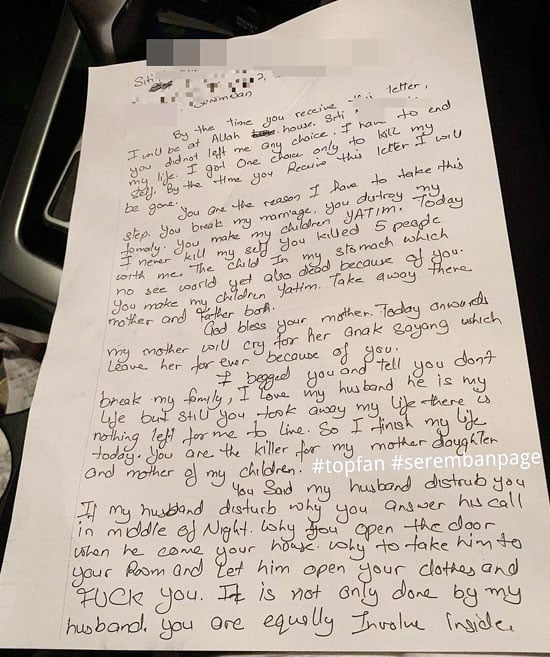 Siti
Seremban
By the time you receive letter,
I will be at Allah house. Siti,
you didnot left me any choice. I have to end
my life. I got One choice only to kill my
self. By the time you Receive this letter I will
be gone.
You are the reason I have to take this
step. You break my marriage, you distroy my
famaly. You make my children YATIM. Today
I never kill my self you killed 5 people
with me. The child In my stomach which
no see world yet also dead because of you.
You make my children Yatim. Take away there
mother and father both.
God bless your mother. Today onwards
my mother will cry for her anak Sayang which
leave her for ever because of you.
I begged you and tell you don't
break my family, I love my husband he is my
life but still you took away my life there is
nothing left for me to live. So I finish my life
today. You are the killer for my mother daughter
and mother of my children.
#topfan #serembanpage
You Said my husband distrub you
If my husband disturb why you answer his call
in middle of Night. Why you open the door
when he come your house. Why to take him to
your Room and Let him open your clothes and
FUCK you. It is not only done by my
husband. you are equelly Involve inside.